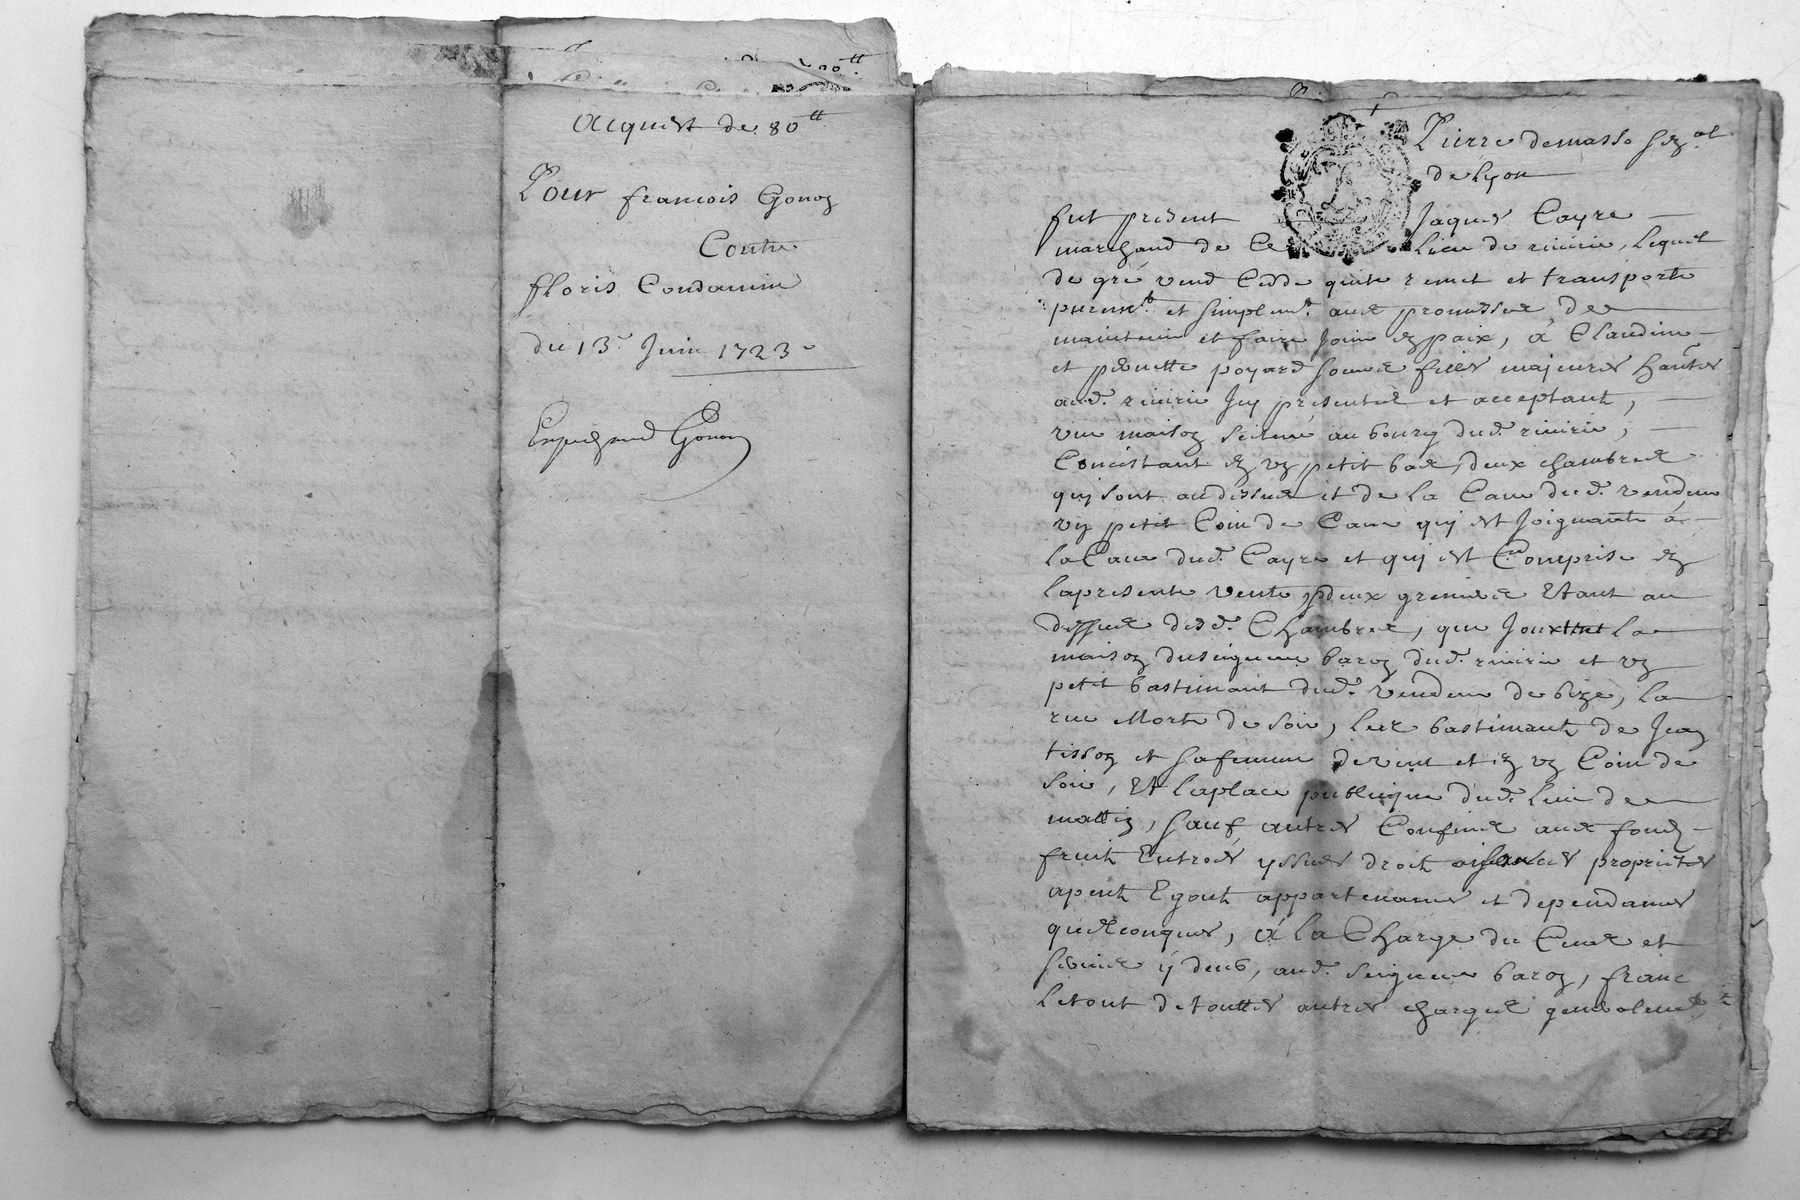 Acquist de 80 ₶
Pour francois Gonoz
Contre
floris Condamin
du 13e Juin 1723
Expedié Gonon
Pierre demasso sen.al
de lyon
fut present Jaques Cayre
marchand de Ce lieu de riuirie, lequel
de gré vend Cedde quite remet et transporte
purem.t et simplem.t auec promesse de
maintenir et faire Jouir en paix, a Claudine
et pernette poyard soeurs filles majeures hab.tes
aud. riuirie Icy presentes et acceptant,
vne maison scituée au bourg dud. riuirie,
Concistant en vn petit bas, deux chambres
qui sont au dessus et de la Caue dud. vendeur
vn petit Coin de Caue qui est Joignante à
la Caue dud. Cayre et qui est Comprise en
la presente vente, deux greniers Etant au
dessus desd. Chambres, que Jouxttet la
maison du seigneur baron dud. riuirie et vn
petit bastimant dud. vendeur de bize, la
rue Morte de soir, les bastimants de Jean
tisson et sa femme de vent et en vn Coin de
soir, Et la place publique dud. lieu de
mattin, sauf autres Confins auec fonds
fruits Entrées yssues droits aisances proprietes
apents Egouts appartenances et dependances
quelconques, à la Charge du Cens et
seruis y deub, aud. seigneur baron, franc
le tout de touttes autres charges generalem.t